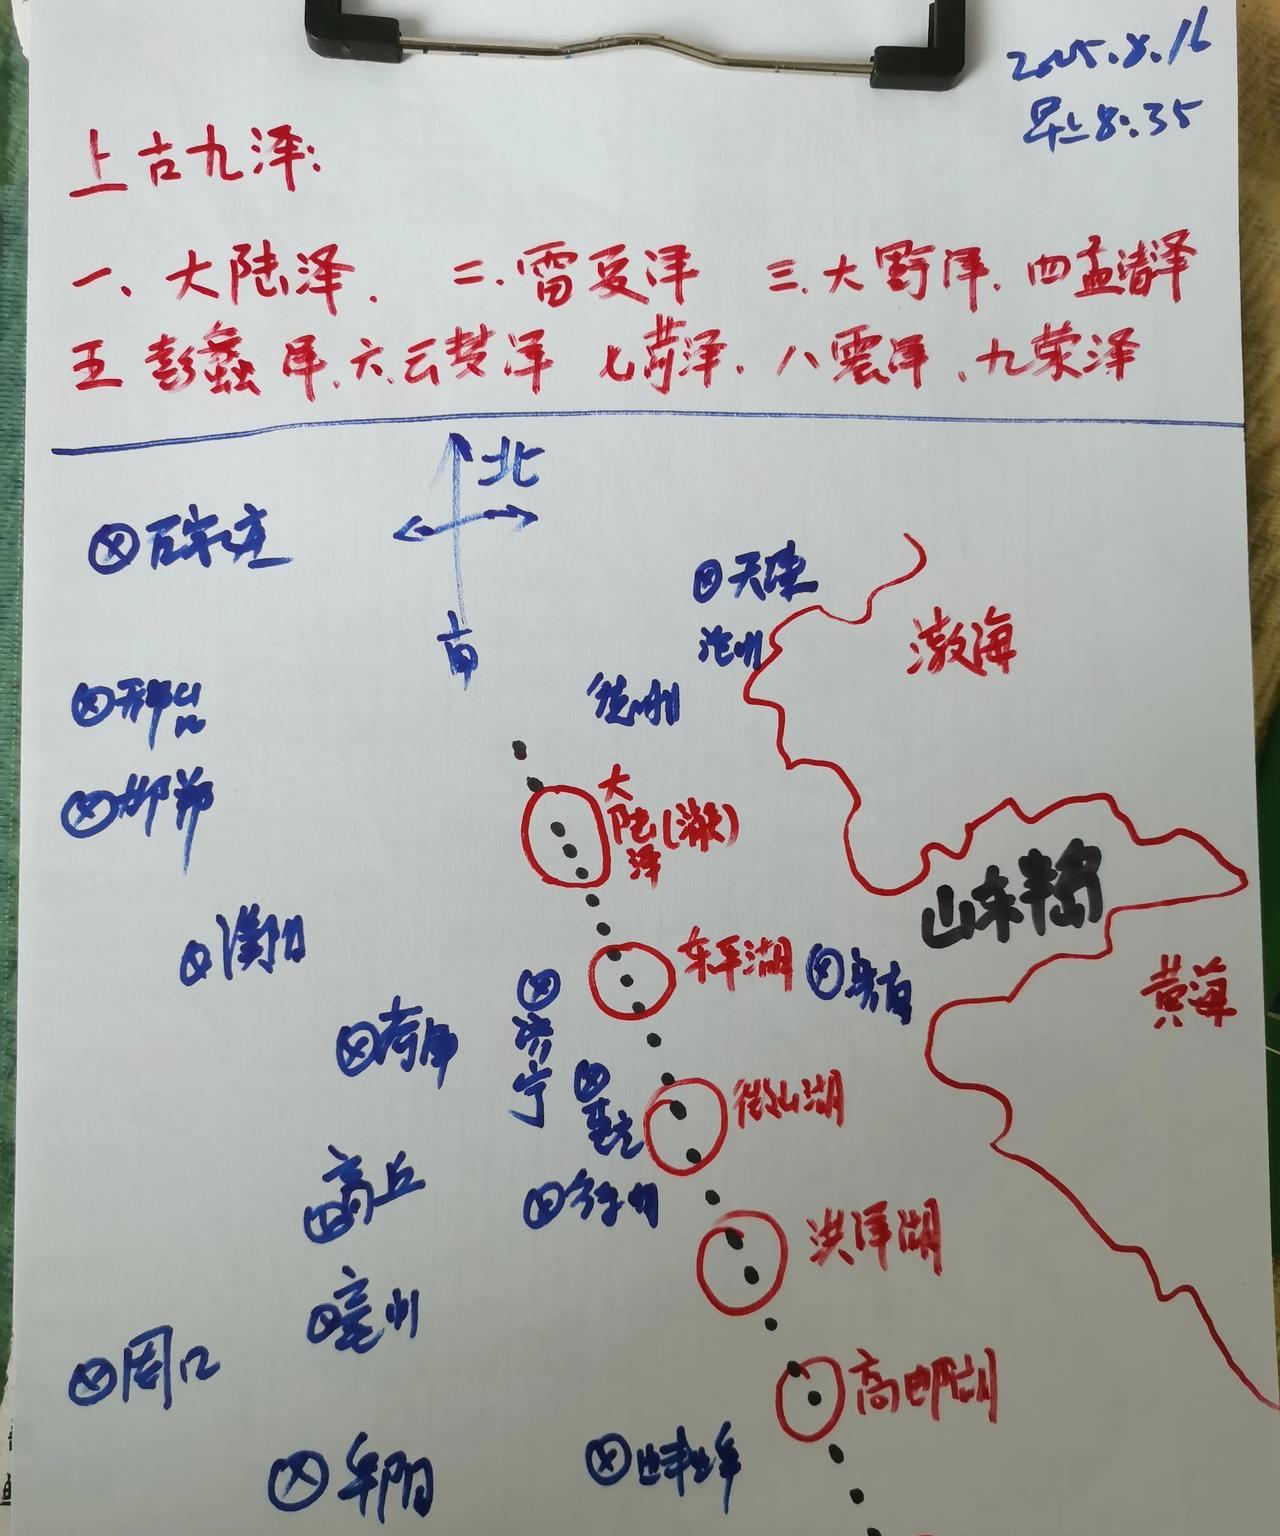 2025.8.16
早上8:35
上古九泽:
一、大陆泽. 二.雷夏泽 三.大野泽. 四孟渚泽
五彭蠡泽.六.云梦泽 七菏泽. 八震泽.九荥泽
北
石家庄
天津
南
沧州
渤海
德州
邢台
邯郸
大陆泽(湫)
山东半岛
濮阳
东平湖
黄海
济宁
菏泽
微山湖
商丘
徐州
洪泽湖
亳州
周口
高邮湖
阜阳
蚌埠